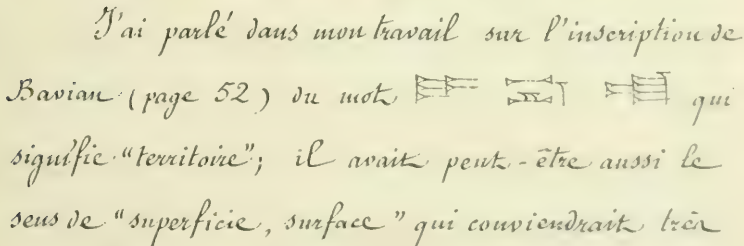 J'ai parlé dans mon travail sur l'inscription de
Bavian (page 52) du mot qui
signifie "territoire"; il avait peut-être aussi le
sens de "superficie, surface" qui conviendrait très